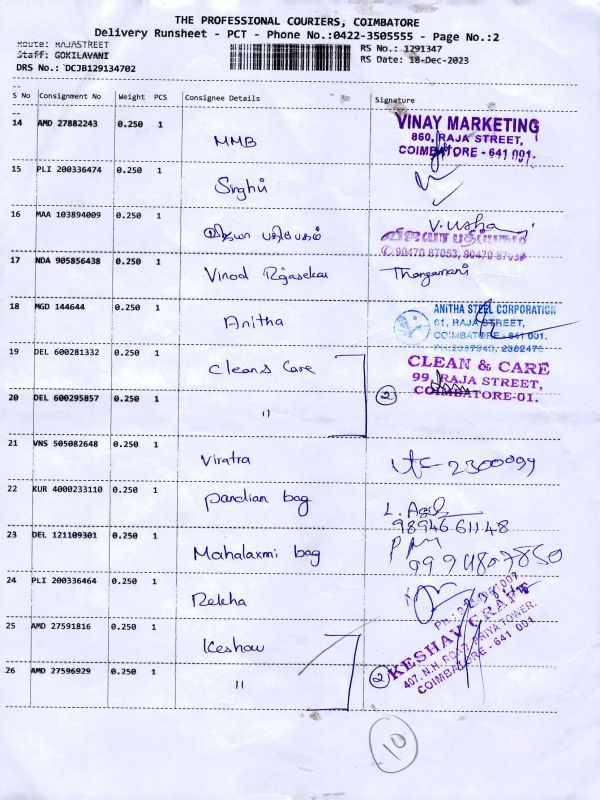 THE PROFESSIONAL COURIERS, COIMBATORE
Delivery Runsheet - PCT - Phone No.:0422-3505555 - Page No.:2
Route: RAJASTREET
Staff: GOKILAVANI
DRS No.: DCJB129134702
RS No.: 1291347
RS Date: 18-Dec-2023
S No Consignment No Weight PCS Consignee Details Signature
14 AMD 27882243 0.250 1 MMB
VINAY MARKETING
860, RAJA STREET,
COIMBATORE - 641 001.
15 PLI 200336474 0.250 1 Singhvi
16 MAA 103894009 0.250 1 விஜயா பதிப்பகம்
V. usha
விஜயா பதிப்பகம்
90470 87053, 90470 87058
17 NDA 905856438 0.250 1 Vinod Rajasekar Thangamani
18 MGD 144644 0.250 1 Anitha
ANITHA STEEL CORPORATION
61, RAJA STREET,
COIMBATORE - 641 001.
PH: 2387840, 2382476
19 DEL 600281332 0.250 1 Clean & Care
CLEAN & CARE
99, RAJA STREET,
COIMBATORE-01.
20 DEL 600295857 0.250 1 "
2
21 VNS 505082648 0.250 1 Viratra
22 KUR 4000233110 0.250 1 pandian bag
98946 61148
23 DEL 121109301 0.250 1 Mahalaxmi bag
24 PLI 200336464 0.250 1 Rekha
25 AMD 27591816 0.250 1 Keshav
KESHAV CRAFT
407, N.H. ROAD, PRIYA TOWER,
COIMBATORE - 641 001
26 AMD 27596929 0.250 1 "
2
10